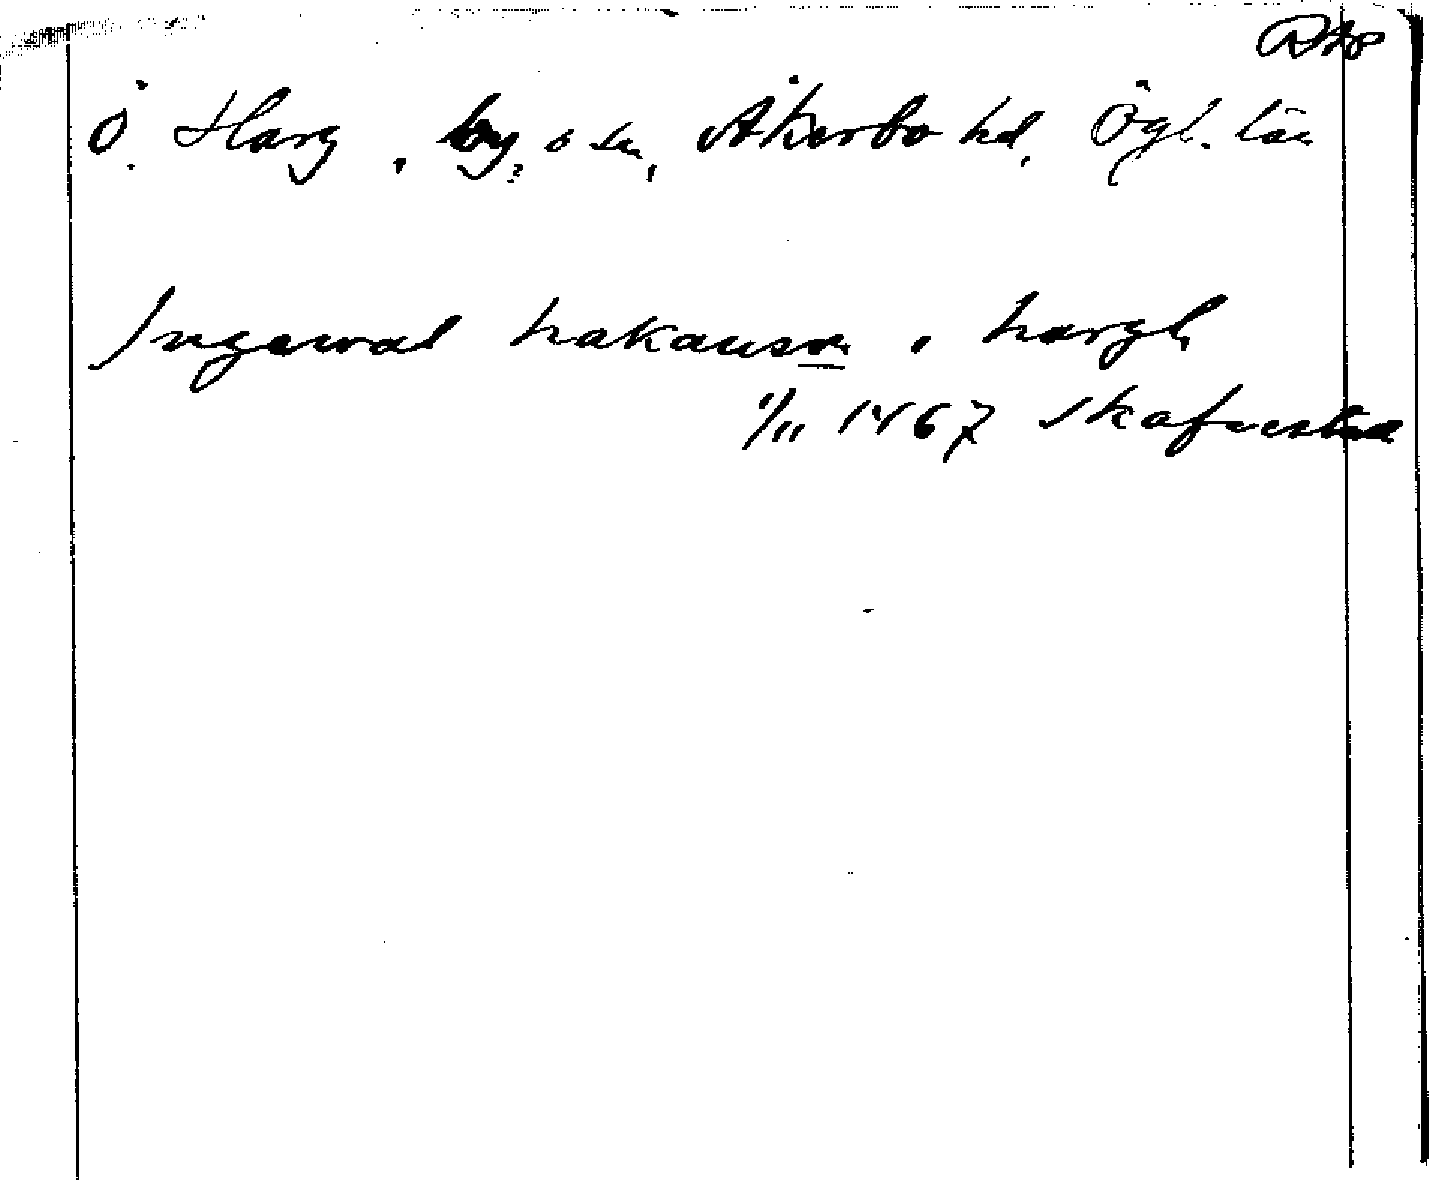 Ö. Harg, by, o sn, Åkerbo hd, Ögl. län
Ingewal hakanson i hargh
1/11 1467 Skafvestad